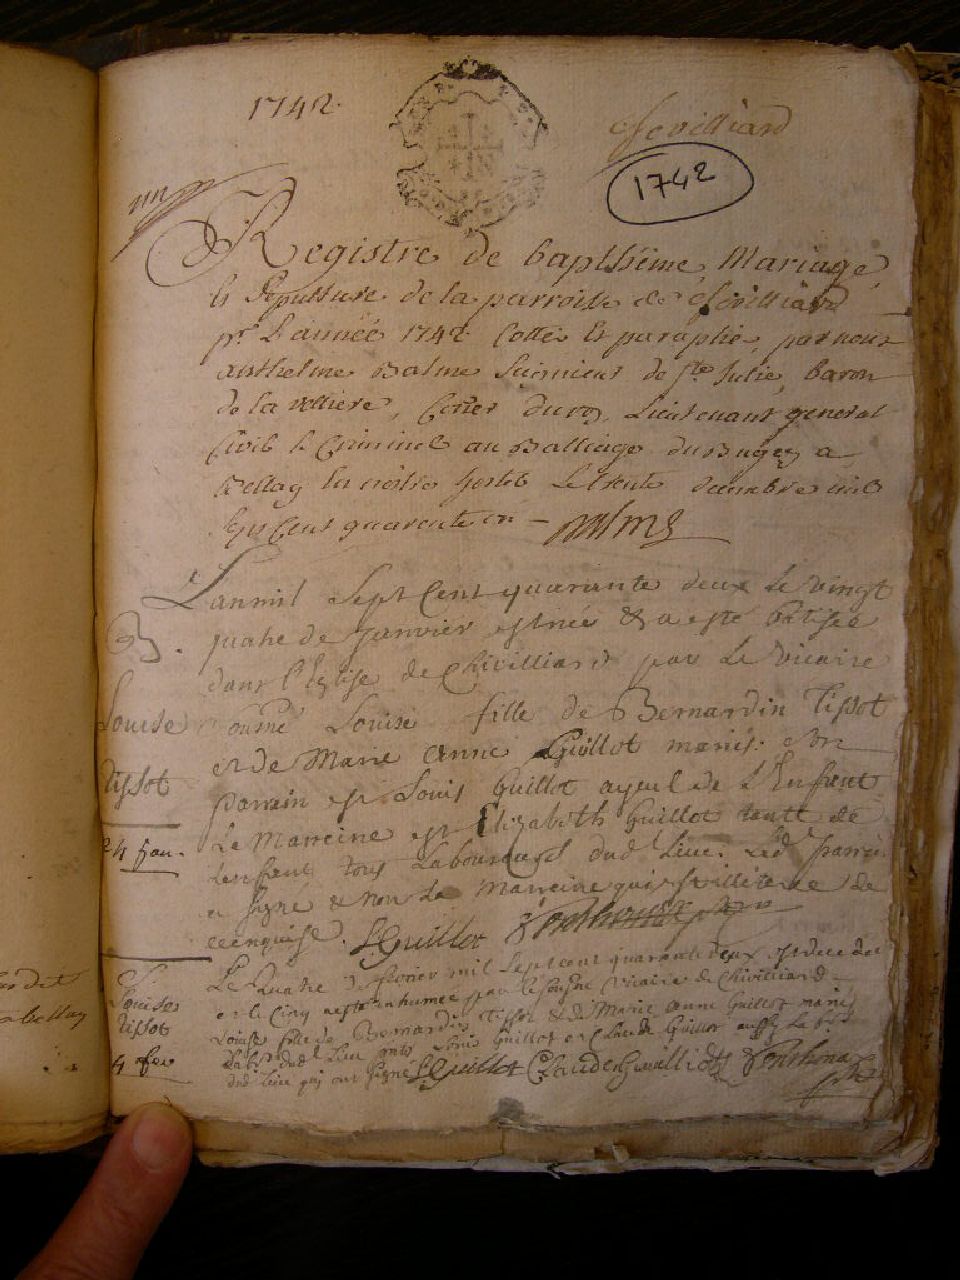 1742.
chevilliard
1742
Registre de bapthéme, Mariage,
Et Sepulture de la parroisse de chevilliard
pr L'année 1742 Cottés Et paraphé, par nous
Anthelme Balme Seigneur de Ste Julie, baron
de la velliere, Coner du roy, Lieutenant general
Civil & Criminel au Balliage du Bugey a
Bellay En nôtre hostel Le trente decembre mil
Sept Cent quarante un - Balme
Lan mil Sept Cent quarante deux Le vingt
B. quatre de Janvier est née & a esté batisée
dans l'Eglise de Chivilliard par Le vicaire
Louise Louise fille de Bernardin Tissot
Tissot et de Marie Anne Guillot mariés. Son
parrain est Louis Guillot ayeul de L'Enfant
24 jan. La Marreine est Elizabeth Guillot tante de
Lenfant tous Laboureurs dud. Lieu. Led. parrain
a signé & non La Marreine qui est illiterée de
ce enquise. LGuillot
Le Quatre de fevrier mil Sept cent quarante deux est decedée
Louise et le Cinq a esté inhumée par le soussigné vicaire de Chivilliard
Tissot Louise fille de Bernardin Tissot & de Marie Anne Guillot mariés
Lab. dud. Lieu pnts Louis Guillot et Claude Guillot aussy Lab.
4 fev dud. Lieu qui ont signé LGuillot Claude